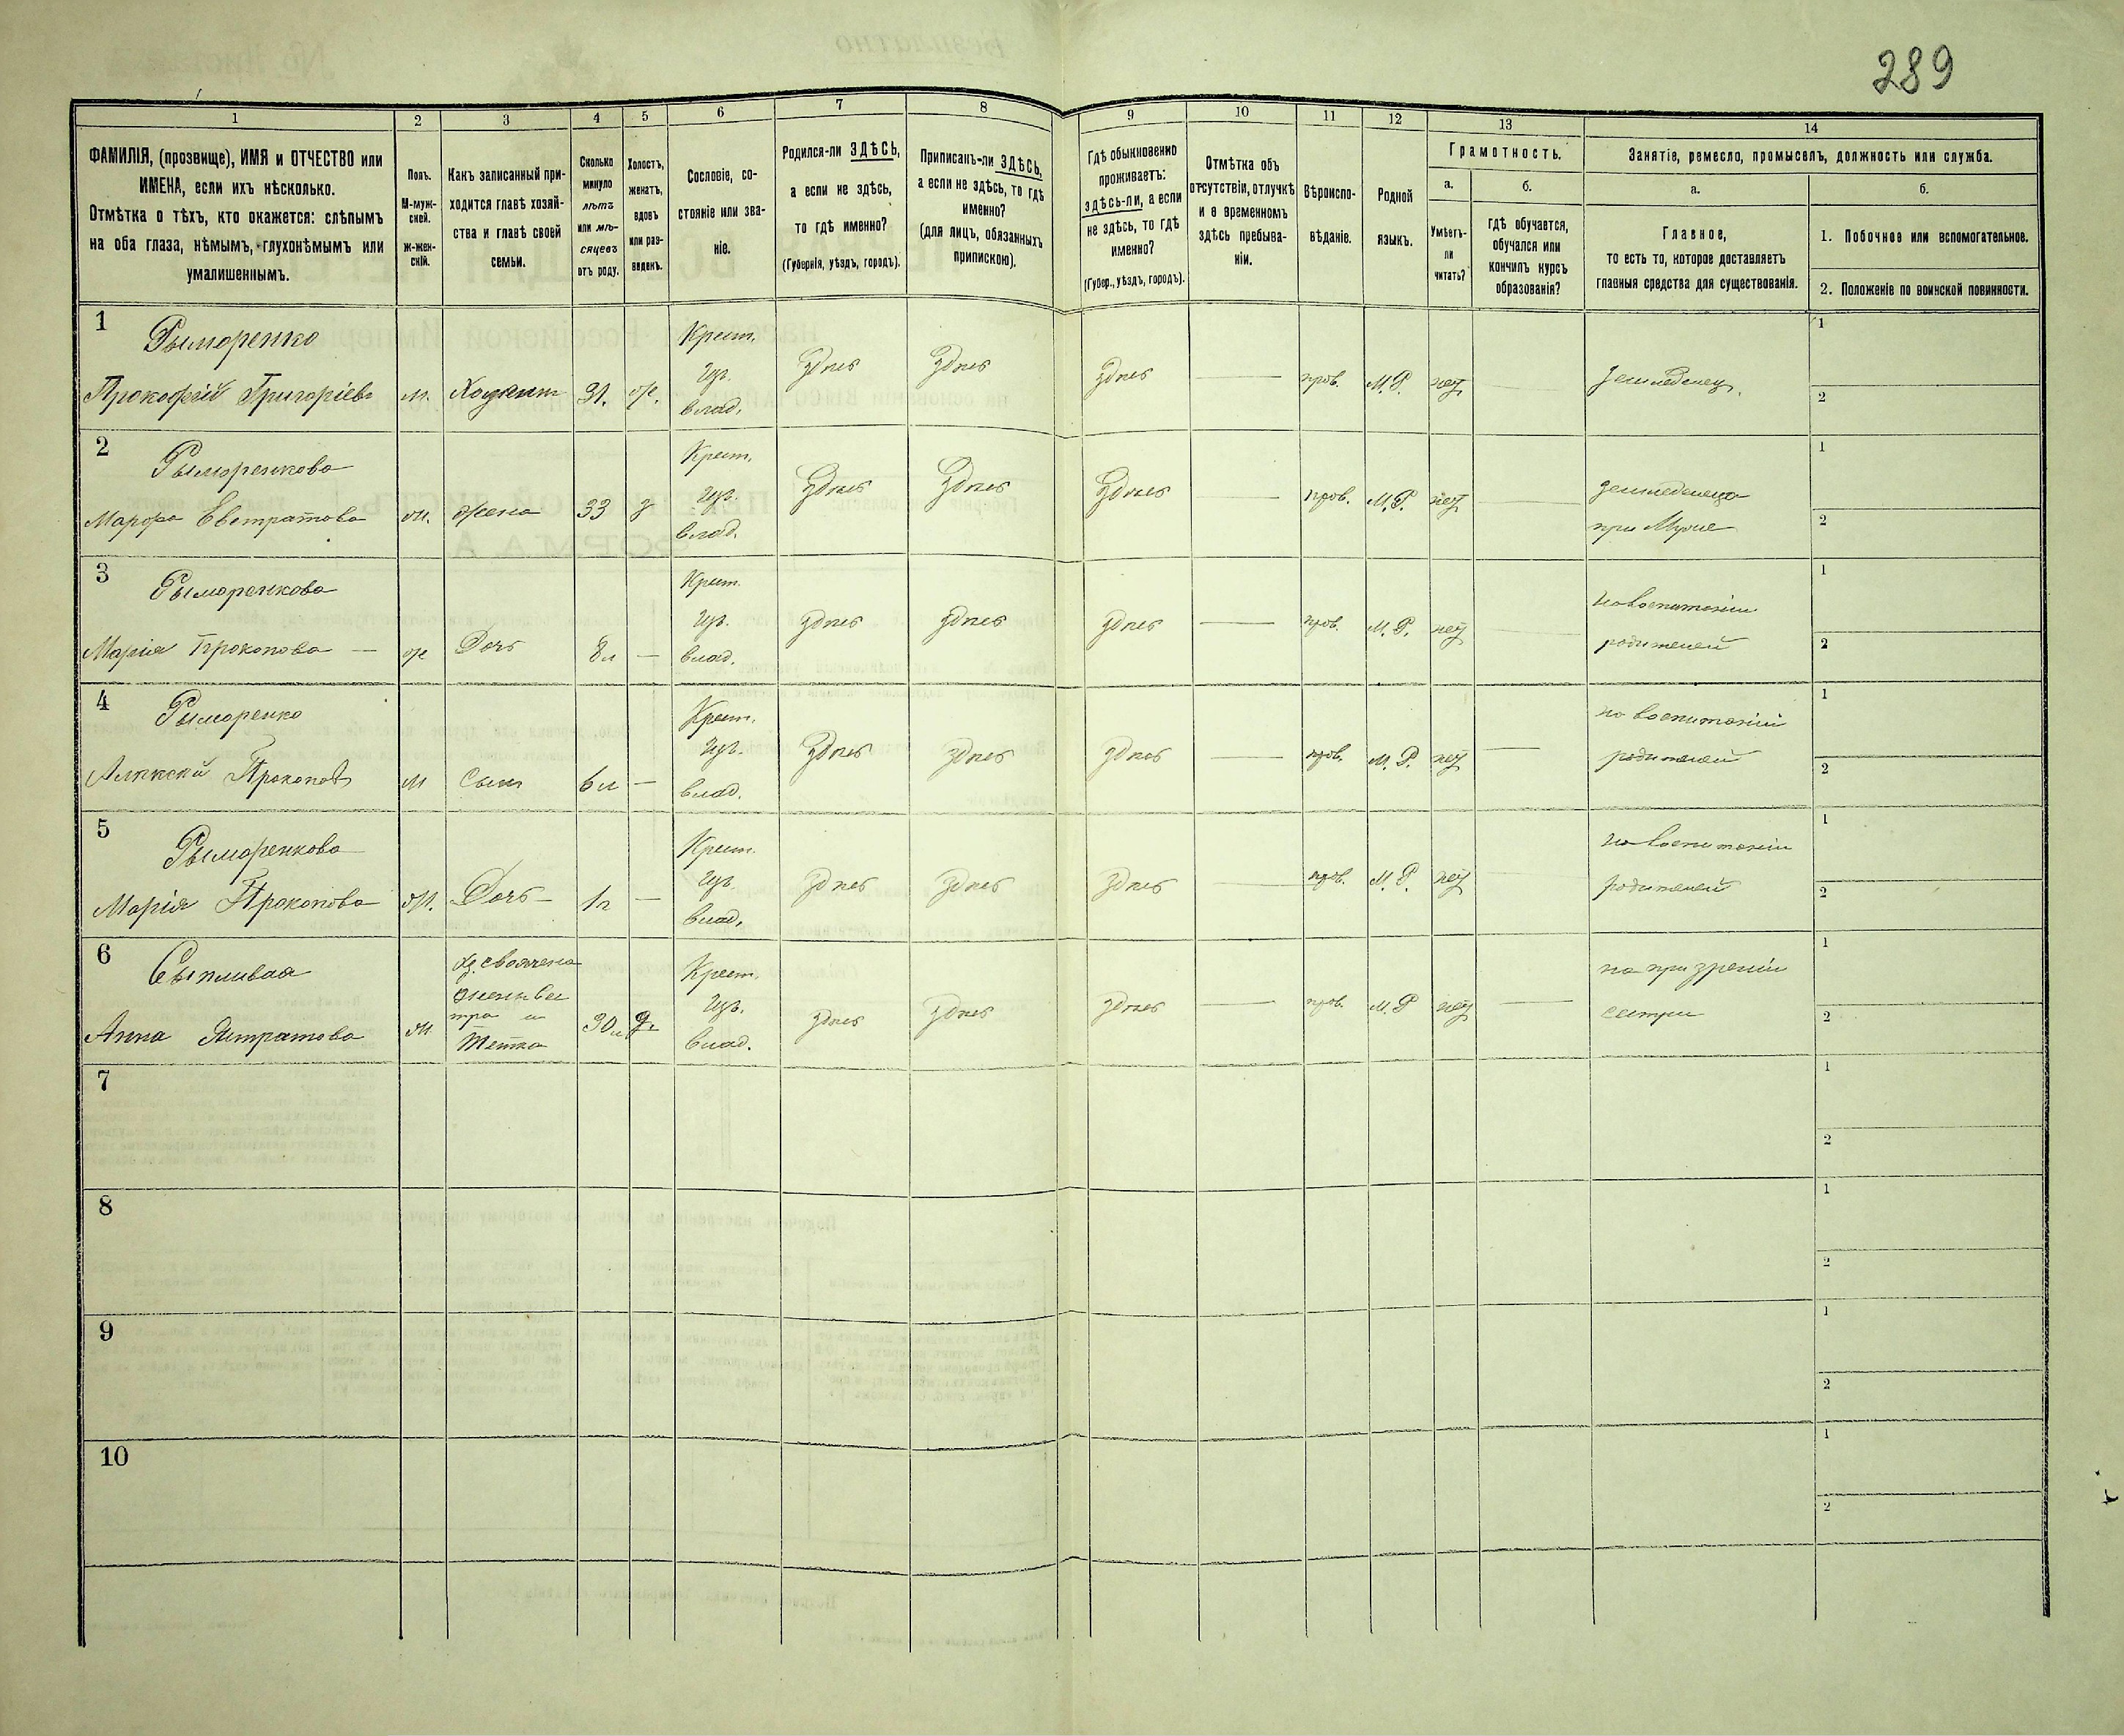 289
1 2 3 4 5 6 7 8 9 10 11 12 13 14
ФАМИЛІЯ, (прозвище), ИМЯ и ОТЧЕСТВО или
ИМЕНА, если ихъ нѣсколько.
Отмѣтка о тѣхъ, кто окажется: слѣпымъ
на оба глаза, нѣмымъ, глухонѣмымъ или
умалишеннымъ.
Полъ.
М-муж-
ской.
Ж-жен-
скій.
Какъ записанный при-
ходится главѣ хозяй-
ства и главѣ своей
семьи.
Сколько
минуло
лѣтъ
или мѣ-
сяцевъ
отъ роду.
Холостъ,
женатъ,
вдовъ
или раз-
веденъ.
Сословіе, со-
стояніе или зва-
ніе.
Родился-ли ЗДѢСЬ,
а если не здѣсь,
то гдѣ именно?
(Губернія, уѣздъ, городъ).
Приписанъ-ли ЗДѢСЬ,
а если не здѣсь, то гдѣ
именно?
(для лицъ, обязанныхъ
припискою).
Гдѣ обыкновенно
проживаетъ:
здѣсь-ли, а если
не здѣсь, то гдѣ
именно?
(Губер., уѣздъ, городъ).
Отмѣтка объ
отсутствіи, отлучкѣ
и о временномъ
здѣсь пребыва-
ніи.
Вѣроиспо-
вѣданіе.
Родной
языкъ.
Грамотность.
а.
Умѣетъ-
ли
читать?
б.
гдѣ обучается,
обучался или
кончилъ курсъ
образованія?
Занятіе, ремесло, промыселъ, должность или служба.
а.
Главное,
то есть то, которое доставляетъ
главныя средства для существованія.
б.
1. Побочное или вспомогательное.
2. Положеніе по воинской повинности.
1
Рыморенко
Прокофій Григоріевъ
м.
31.
ж.
Крест.
влад.
здѣсь
здѣсь
здѣсь
прав.
М.Р.
нет
земледелец.
1
2
2
Рыморенкова
Марфа Евстратова
ж.
жена
33
з
Крест.
влад.
здѣсь
здѣсь
здѣсь
прав.
М.Р.
нет
земледелеца
при Муже
1
2
3
Рыморенкова
Марія Прокопова
ж
Дочь
8 л
Крест.
влад.
здѣсь
здѣсь
здѣсь
прав.
М.Р.
нет
на воспитаніи
родителей
1
2
4
Рыморенко
Алексѣй Прокоповъ
м
Сынъ
6 л
Крест.
влад.
здѣсь
здѣсь
здѣсь
прав.
М.Р.
нет
на воспитаніи
родителей
1
2
5
Рыморенкова
Марія Прокопова
ж.
Дочь
1 г
Крест.
влад.
здѣсь
здѣсь
здѣсь
прав.
М.Р.
нет
на воспитаніи
родителей
1
2
6
Сыпливая
Анна
ж
свояченa
Тетка
30 л
Крест.
влад.
здѣсь
здѣсь
здѣсь
прав.
М.Р
нет
на призреніи
сестры
1
2
7
1
2
8
1
2
9
1
2
10
1
2